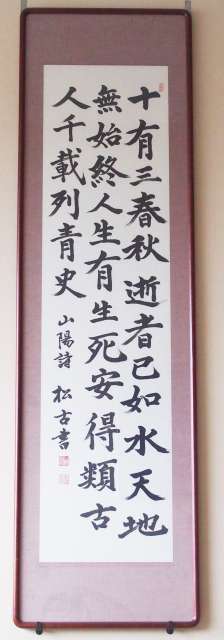 十有三春秋逝者已如水天地
無始終人生有生死安得類古
人千載列青史
山陽詩 松古書